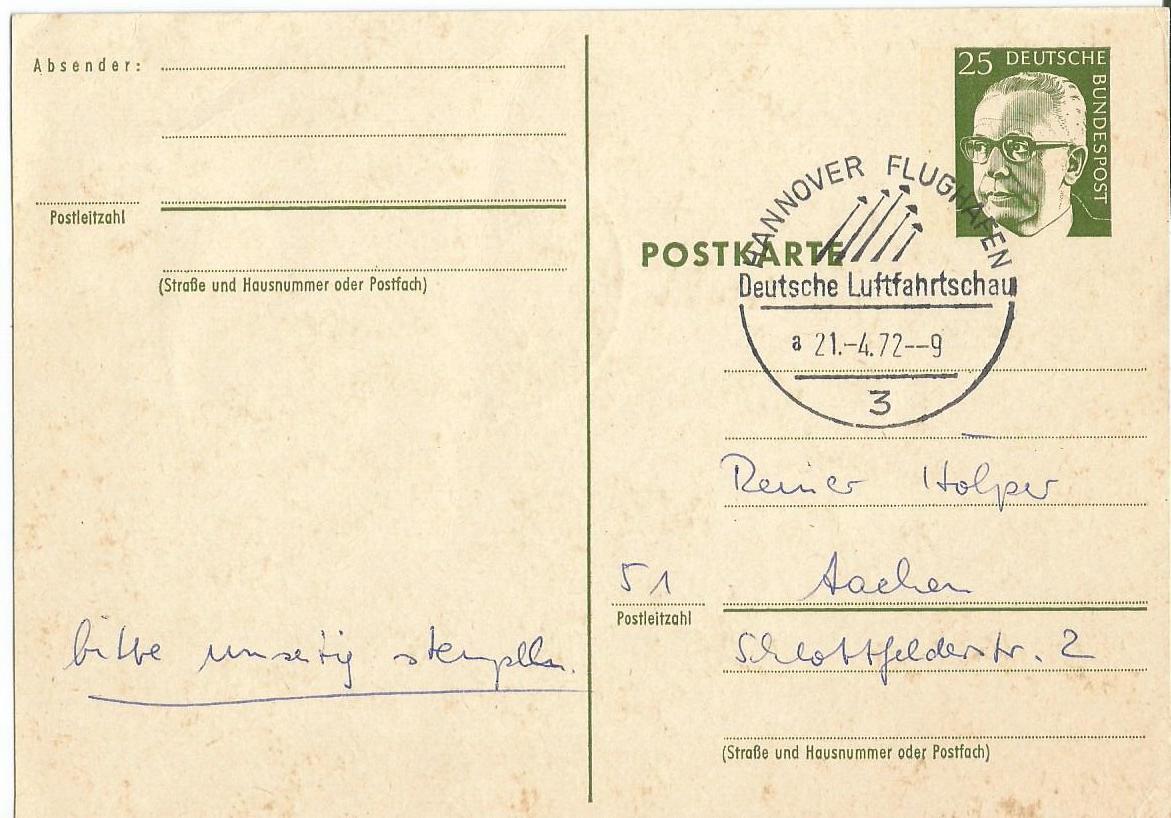 Absender:
Postleitzahl
(Straße und Hausnummer oder Postfach)
25 DEUTSCHE
BUNDESPOST
HANNOVER FLUGHAFEN
POSTKARTE
Deutsche Luftfahrtschau
a 21.-4.72--9
3
Reiner Holper
51 Aachen
Postleitzahl
Schlottfelderstr. 2
(Straße und Hausnummer oder Postfach)
bitte umseitig stempeln.